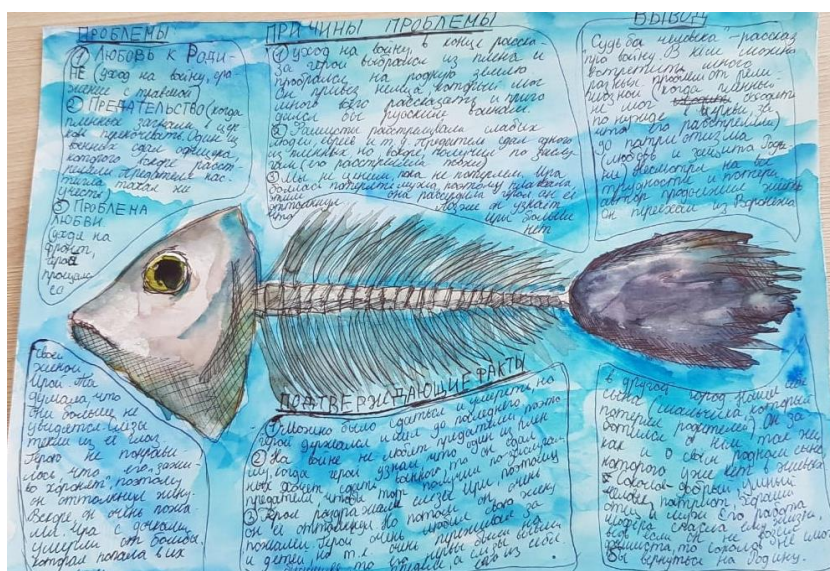 ПРОБЛЕМЫ
① ЛЮБОВЬ К РОДИ-
НЕ (уход на войну, сра-
жение с травмой)
② ПРЕДАТЕЛЬСТВО (когда
пленных загнали в цер-
ковь переночевать. Один из
военных сдал офицера
которого вскоре расст-
реляли. Предателя нас-
тигла такая же
участь)
③ ПРОБЛЕМА
ЛЮБВИ
(уходя на
фронт,
герой
прощал
ся
своей
женой
Ирой. Та
думала, что
они больше не
увидятся. Слёзы
текли из её глаз
Герою не понрави-
лось, что его "зажи-
во хоронят", поэтому
он оттолкнул жену.
Вскоре, он очень пожа-
лел. Ира с дочками
умерли от бомбы,
которая попала в их
ПРИЧИНЫ ПРОБЛЕМЫ
① Уход на войну, в конце расска-
за герой выбрался из плена и
пробрался на родную землю
Он привёз немца, который мог
много чего рассказать и приго
дился бы русским воинам.
② Фашисты расстреливали слабых
людей, евреев и т.д. Предатель сдал одного
из них
③ Мы не ценим, пока не потеряем. Ира
боялась потерять мужа, поэтому плакала
этим она рассердила героя и он её
оттолкнул. Позже он узнает
что Иры больше
нет
ВЫВОД
Судьба человека" - рассказ
про войну. В нём можно
встретить много
проблем от рели-
гиозных (когда пленный
не мог сходить
по нужде в церкви
его расстреляли)
до патриотизма
(любовь и защита Роди-
ны) Несмотря на все
трудности и потери
автор продолжил жизнь
он переехал из Воронежа
в другой город. Нашёл себе
сына (мальчика, который
потерял родителей). Он за
ботился о нём так же
как и о своём родном сыне
которого уже нет в живых
Соколов - добрый, умный
человек, патриот, хороший
отец и муж. Его работа
шофера спасла ему жизнь,
ведь если он не возил
фашиста, то Соколов не смог
бы вернуться на Родину.
ПОДТВЕРЖДАЮЩИЕ ФАКТЫ
① Можно было сдаться и умереть, но
герой держался и шёл до последнего
② На войне не любят предателей, поэто
му, когда герой узнал что один из плен
ных хочет сдать
предателя, чтобы тот
③ Героя раздражали слёзы Иры, поэтому
он её оттолкнул. Но потом он очень
пожалел. Герой очень любил свою жену
и детей, но т.к. очень переживал за